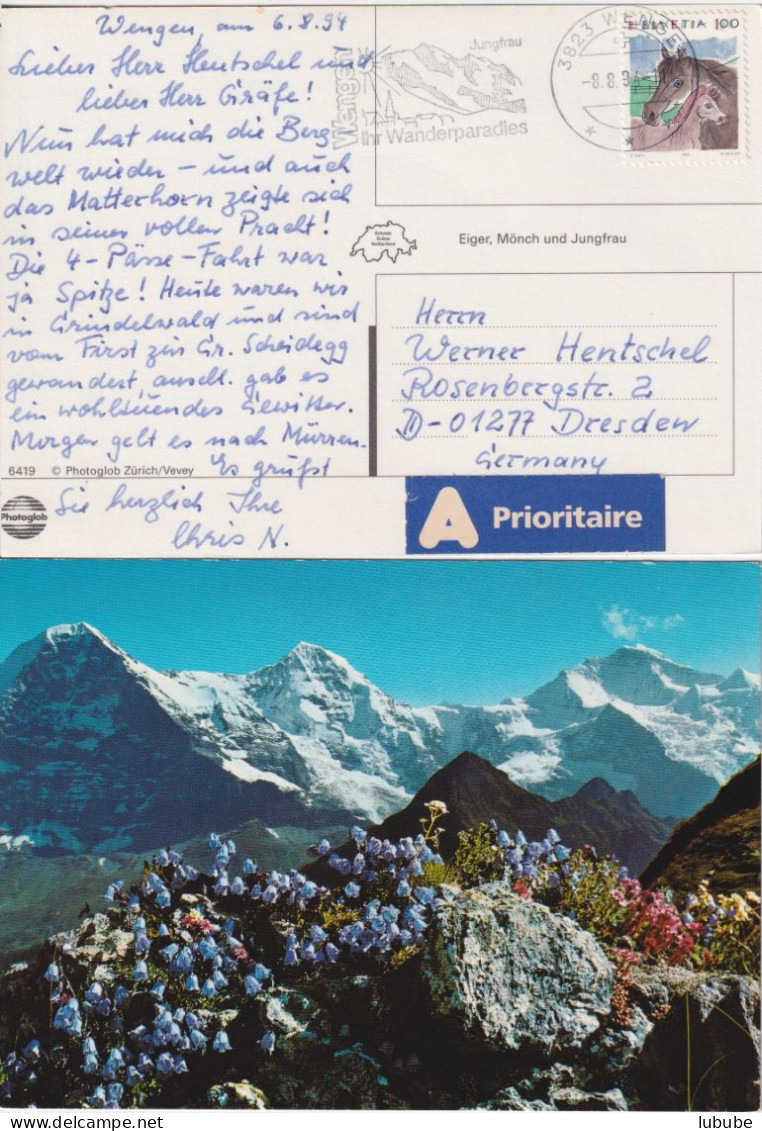 Wengen, am 6.8.94
Lieber Herr Hentschel und
lieber Herr Gräfe!
Nun hat mich die Berg
welt wieder – und auch
das Matterhorn zeigte sich
in seiner vollen Pracht!
Die 4-Pässe-Fahrt war
ja Spitze! Heute waren wir
in Grindelwald und sind
vom First zur Gr. Scheidegg
gewandert, anschl. gab es
ein wohltuendes Gewitter.
Morgen geht es nach Mürren.
Es grüßt
Sie herzlich Ihre
Chris N.
6419 © Photoglob Zürich/Vevey
Photoglob
Wengen
Jungfrau
Ihr Wanderparadies
3823 WENGEN
-8.8.94
HELVETIA 100
Eiger, Mönch und Jungfrau
Herrn
Werner Hentschel
Rosenbergstr. 2
D-01277 Dresden
Germany
A Prioritaire
lubube - Delcampe.net